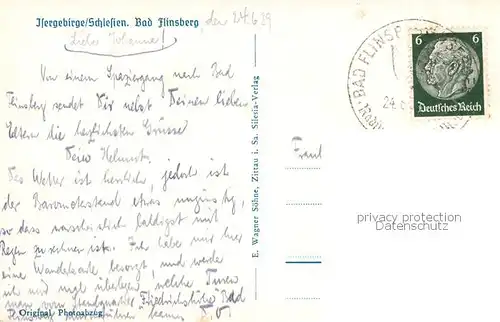 Isergebirge/Schlesien. Bad Flinsberg, den 24.6.39
Lieber Johannes!
Von einem Spaziergang nach Bad
Flinsberg sendet Dir nebst Deinen lieben
Eltern die herzlichsten Grüsse
Dein Helmut.
Das Wetter ist herrlich, jedoch ist
der Barometerstand etwas ungünstig,
so dass wahrscheinlich baldigst mit
Regen zu rechnen ist. Ich habe mir hier
eine Wanderkarte besorgt, und werde
ich mal überlegen welche Turen
man vom Standquartier Bad
Flinsberg kann
Original-Photoabzug
E. Wagner Söhne, Zittau i. Sa. Silesia-Verlag
BAD FLINSB
24.6
6 6
Deutsches Reich
privacy protection
AnsichtskartenVersand.com